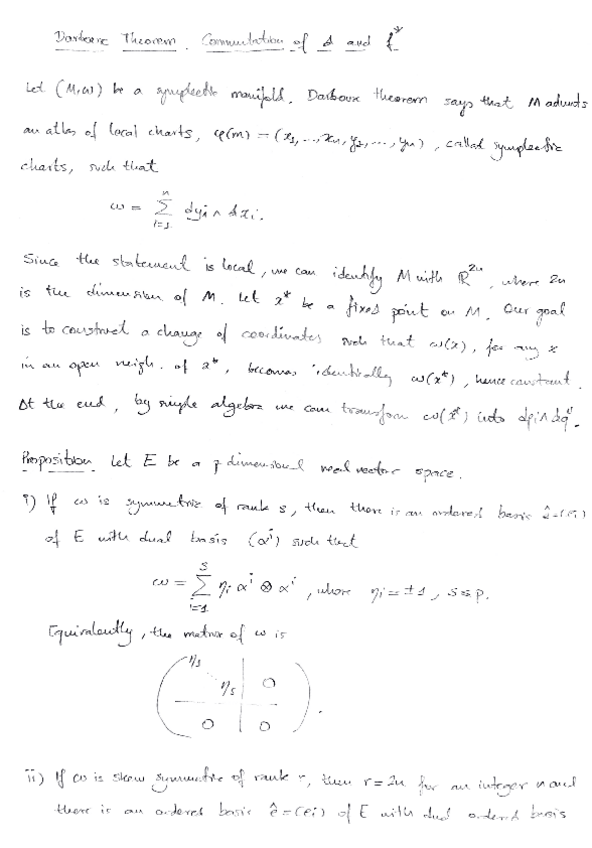 Darboux Theorem. Commutation of d and f*
Let (M,ω) be a symplectic manifold. Darboux theorem says that M admits
an atlas of local charts, φ(m) = (x₁, ..., xₙ, y₁, ..., yₙ), called symplectic
charts, such that
ω = Σᵢ₌₁ⁿ dyᵢ ∧ dxᵢ.
Since the statement is local, we can identify M with ℝ²ⁿ, where 2n
is the dimension of M. Let x* be a fixed point on M. Our goal
is to construct a change of coordinates such that ω(x), for any x
in an open neigh. of x*, becomes identically ω(x*), hence constant.
At the end, by simple algebra we can transform ω(x*) into dpᵢ∧dqⁱ.
Proposition. Let E be a p dimensional real vector space.
i) If ω is symmetric of rank s, then there is an ordered basis ê=(eᵢ)
of E with dual basis (αⁱ) such that
ω = Σᵢ₌₁ˢ ηᵢ αⁱ ⊗ αⁱ, where ηᵢ = ±1, s≤p.
Equivalently, the matrix of ω is
η₁
ηₛ 0
0 0 .
ii) If ω is skew symmetric of rank r, then r = 2n for an integer n and
there is an ordered basis ê=(eᵢ) of E with dual ordered basis